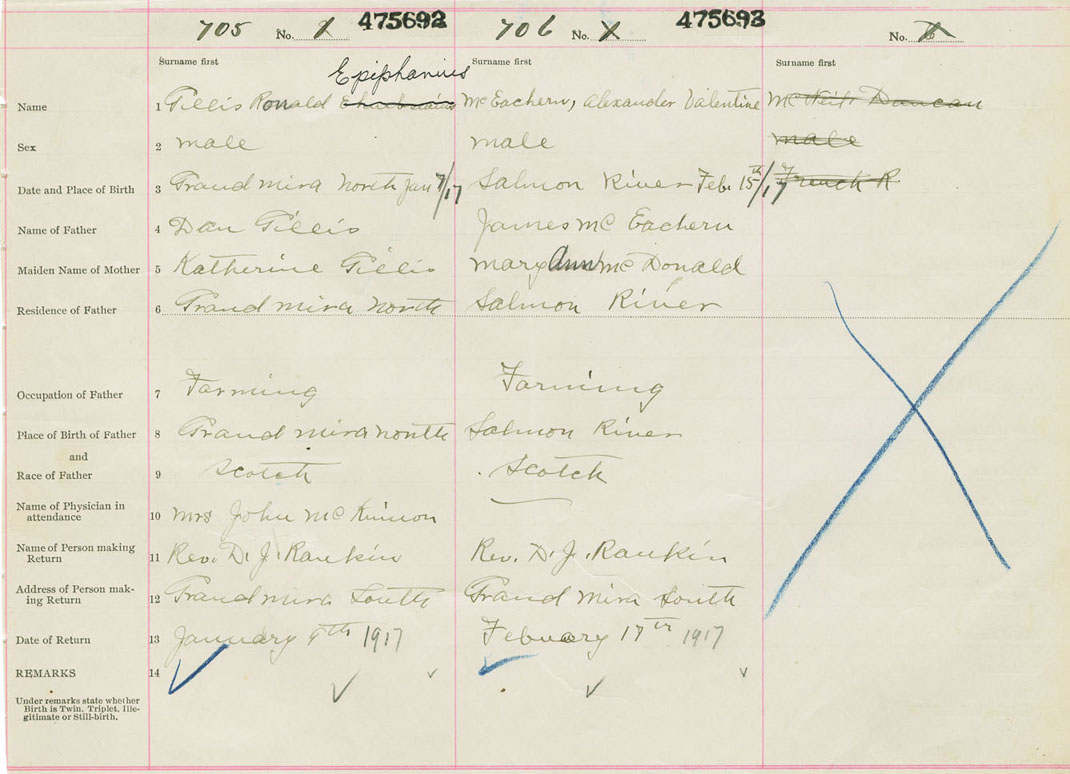 705 No. 1 475692 706 No. X 475693 No.
Surname first Surname first Surname first
Epiphanius
Name 1 Gillis Ronald McEachern, Alexander Valentine McNeil Duncan
Sex 2 male male male
Date and Place of Birth 3 Grand mira North Jan 7/17 Salmon River Feb. 15th/17 French R
Name of Father 4 Dan Gillis James McEachern
Maiden Name of Mother 5 Katherine Gillis Mary Ann McDonald
Residence of Father 6 Grand mira North Salmon River
Occupation of Father 7 Farming Farming
Place of Birth of Father 8 Grand mira North Salmon River
and
Race of Father 9 Scotch Scotch
Name of Physician in
attendance 10 Mrs John McKinnon
Name of Person making
Return 11 Rev. D. J. Rankin Rev. D. J. Rankin
Address of Person mak-
ing Return 12 Grand mira South Grand Mira South
Date of Return 13 January 9th 1917 Febuary 17th 1917
REMARKS 14
Under remarks state whether
Birth is Twin, Triplet, Ille-
gitimate or Still-birth.